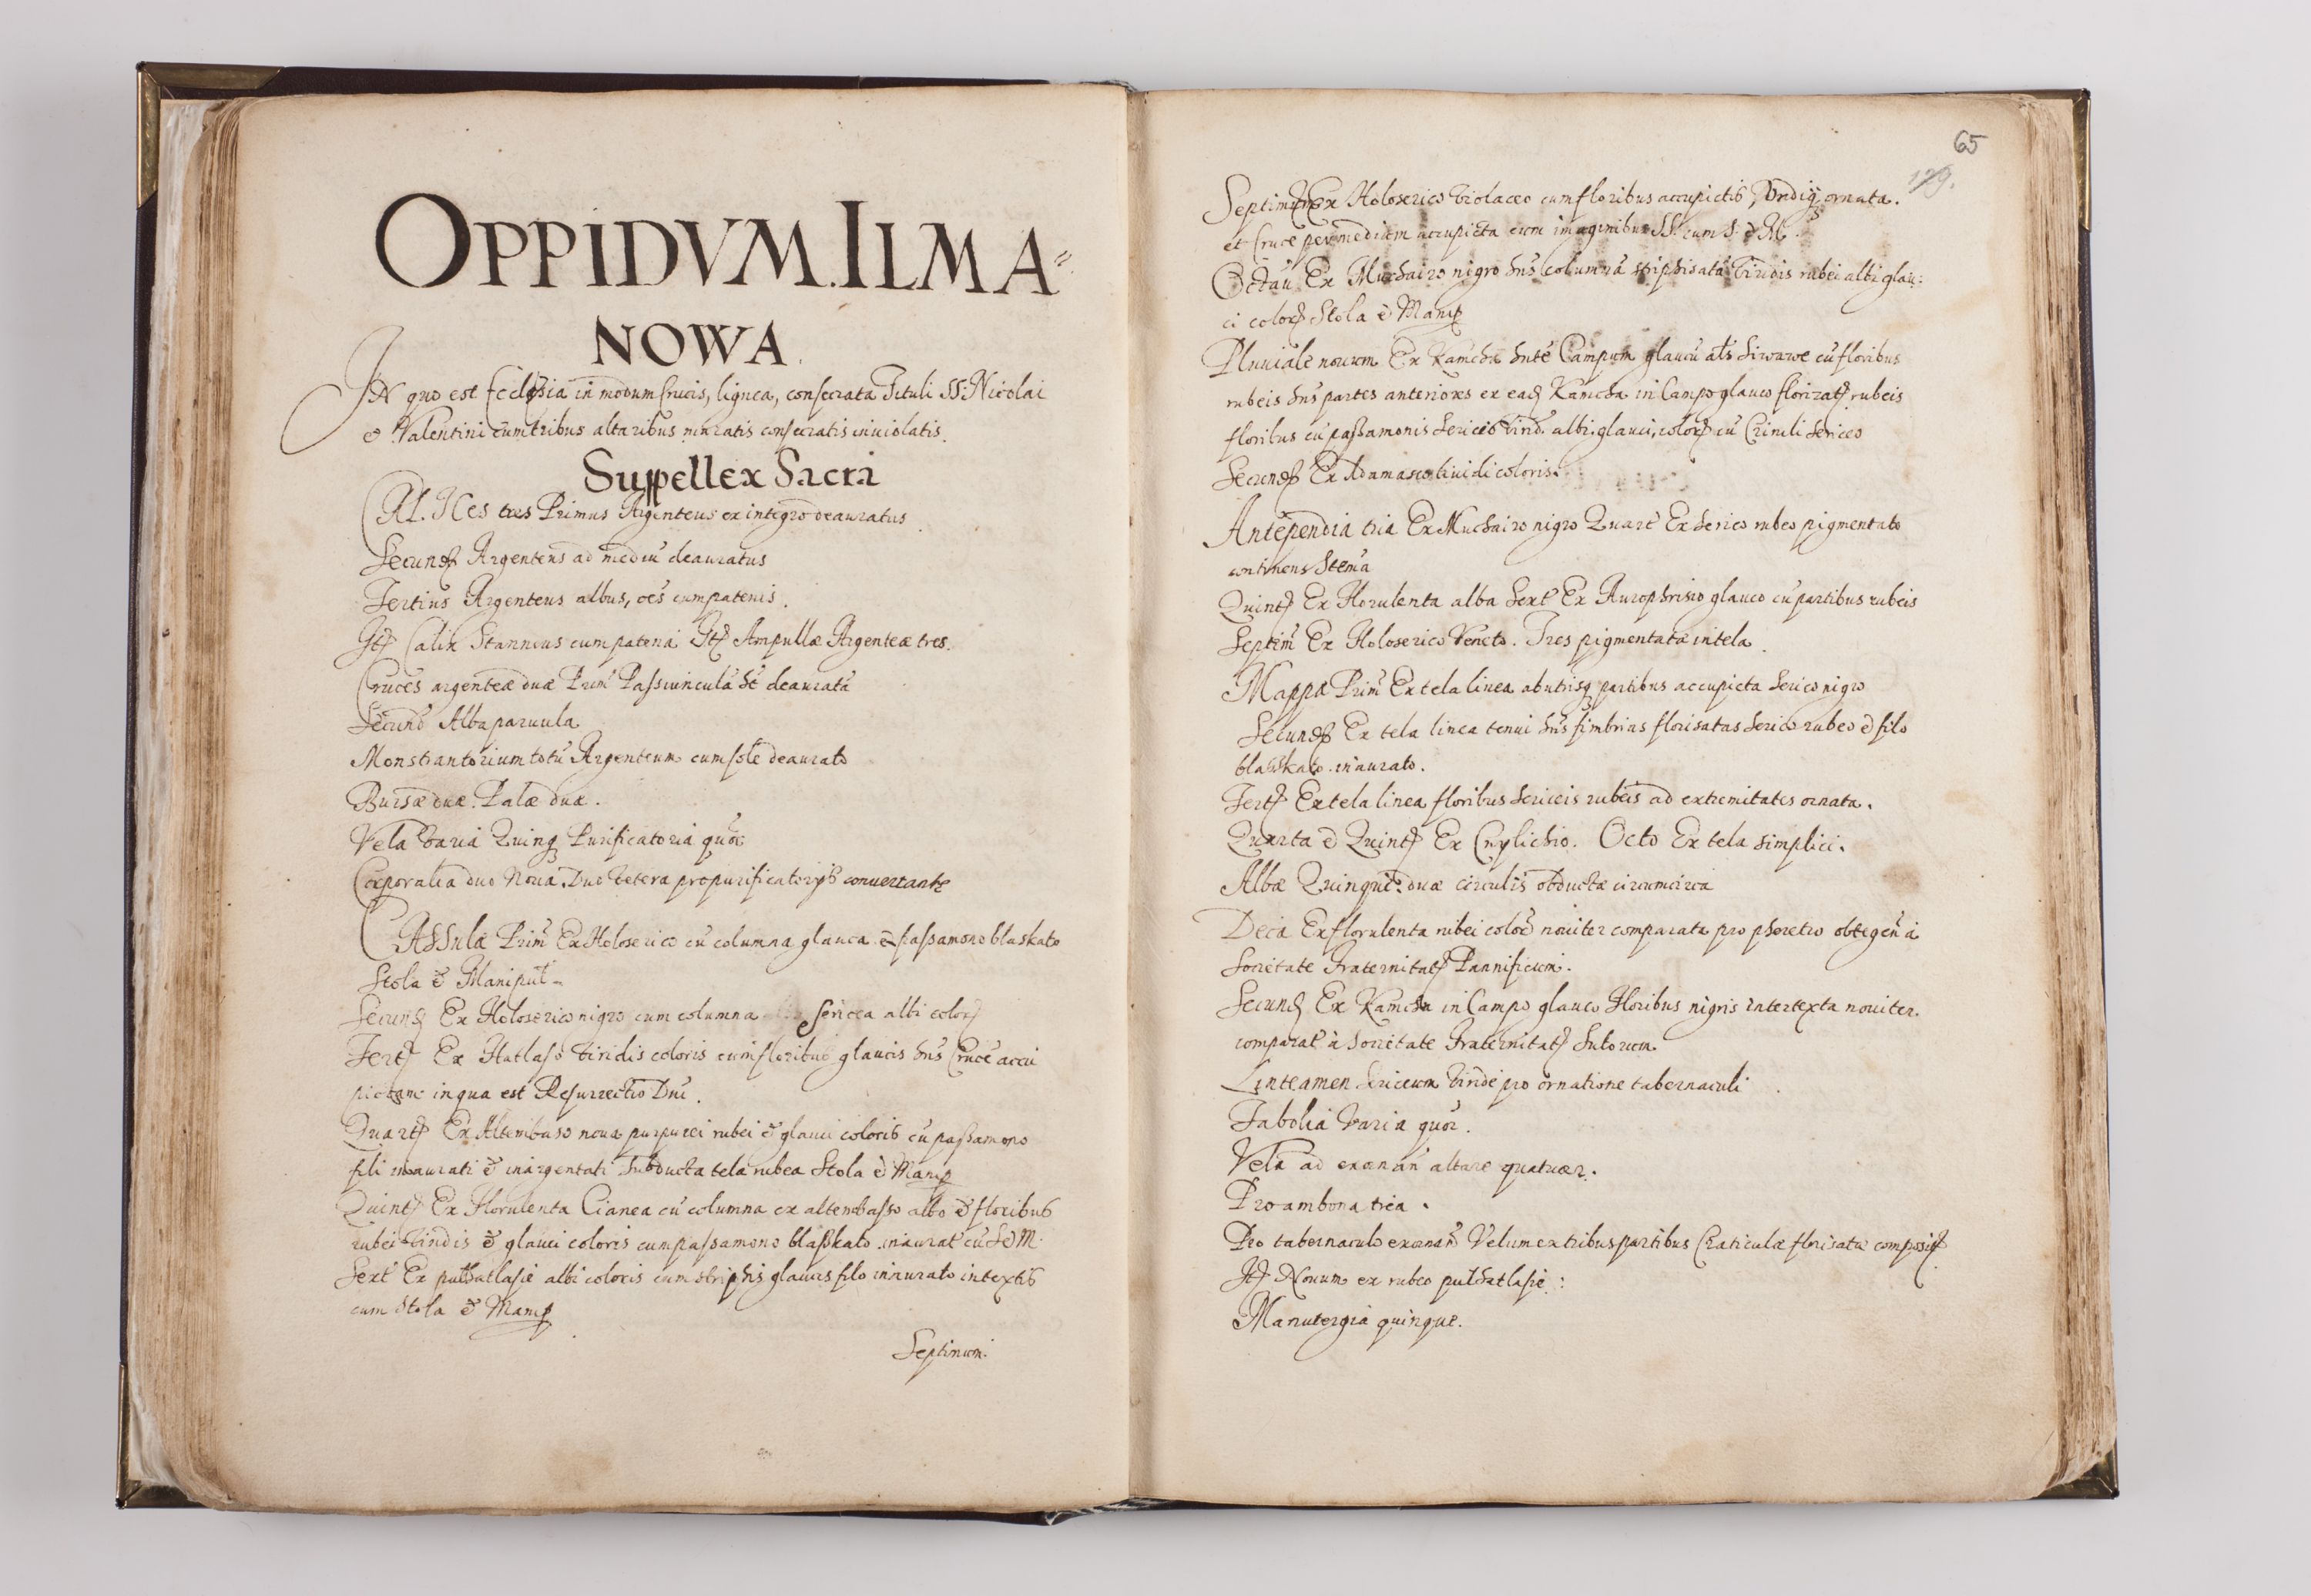 OPPIDVM ILMA=
NOWA.
IN quo est Ecclesia in modum Crucis, lignea, consecrata Tituli SS: Nicolai
& Valentini cum tribus altaribus muratis consecratis inuiolatis.
Suppellex Sacra
CALICes tres Primus Argenteus ex integro deauratus
Secund9 Argenteus ad mediũ deauratus
Tertius Argenteus albus, oẽs cum patenis.
Itẽ Calix Stanneus cum patena Itẽ Ampullæ Argenteæ tres.
Cruces argenteæ duæ Prim̃ Passiuincula deaurata
Secund̃ Alba paruula
Monstrantorium totũ Argenteum cum sole deaurato
Bursæ duæ. Palæ duæ.
Vela Varia Quinq Purificatoria quõr
Corporalia duo Noua. Duo Vetera pro purificatorijs conuertant
CAssulæ Prim̃ Ex Holoserico cũ columna glauca & passamono blaskato
Stola & Manipul
Secund Ex Holoserico nigro cum columna Sericea albi color
Tert Ex Hatlaso Viridis coloris cum floribus glaucis hñs Crucẽ accu
pictam in qua est Resurrectio Dñi.
Quart Ex Altembaso noua purpurei rubei & glauci coloris cũ passamono
fili inaurati & inargentati Subducta tela rubea Stola & Manip
Quint Ex Florulenta Cianea cũ columna ex altembasso albo & floribus
rubei Viridis & glauci coloris cum passamono blaskato inaurat cũ S & M.
Sext Ex pulhatlasie albi coloris cum striphis glaucis filo inaurato intextis
cum Stola & Manip
Septimum.
65
129.
Septim Ex Holoserico Violaceo cum floribus accupictis, Vndiq ornata.
et Cruce per medium accupicta cum imaginibus SS. cum S. & M.
Octau Ex Muchairo nigro hñs columnã striphisatã Viridis rubei albi glau:
ci color Stola & Manip
Pluuiale nouum Ex Kamcha Campum glaucũ als Siwawe cũ floribus
rubeis hñs partes anteriores ex ead Kamcha in Campo glauco florizat rubeis
floribus cũ passamonis Sericeis Virid. albi. glauci, color cũ Crinili Sericeo
Secund9 Ex Adamasco liuidi coloris.
Antependia tria Ex Muchairo nigro Quart Ex Serico rubeo pigmentato
continens Stema
Quint Ex Florulenta alba Sext Ex Aurophrisio glauco cũ partibus rubeis
Septim Ex Holoserico Veneto. Tres pigmentata in tela.
Mappæ Prim̃ Ex tela linea ab utrisq partibus accupicta Serico nigro
Secund9 Ex tela linea tenui hñs fimbrias florisatas Serico rubeo & filo
blaskato inaurato.
Tert Ex tela linea floribus Sericeis rubeis ad extremitates ornata.
Quarta & Quint Ex Cnylichio. Octo Ex tela simplici.
Albæ Quinque. duæ circulis obductæ circumcirca
Deca Ex florulenta rubei color nouiter comparata pro pheretro obtegen à
Societate Fraternitat Pannificum.
Secund Ex Kamcha in Campo glauco floribus nigris intertexta nouiter.
comparat à Societate Fraternitat Sutorum
Linteamen Sericeum Viride pro ornatione tabernaculi
Fabolia Varia quor.
Vela ad exornan altare quatuor.
Pro ambona tria.
Pro tabernaculo exornan Velum ex tribus partibus Craticulæ florisatæ composit
It Nouum ex rubeo pulhatlasie:
Manutergia quinque.